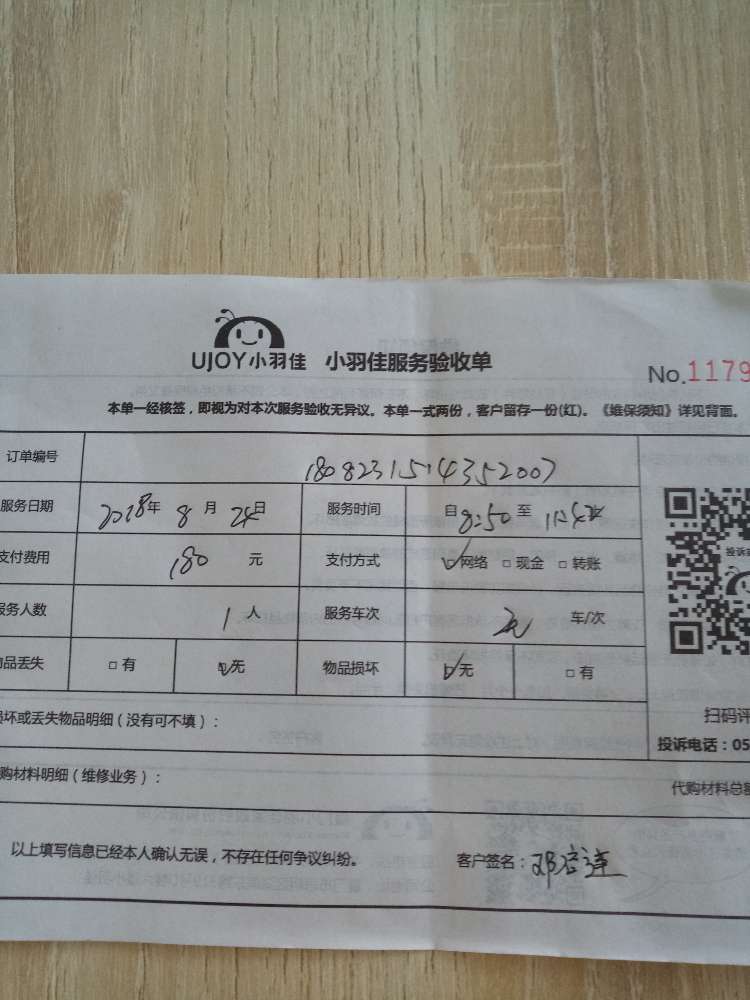 UJOY小羽佳 小羽佳服务验收单
No.1179
本单一经核签，即视为对本次服务验收无异议。本单一式两份，客户留存一份(红)。《维保须知》详见背面。
订单编号 1808231514352007
服务日期 2018年 8 月 24日 服务时间 自 8:50 至
支付费用 180 元 支付方式 网络 □ 现金 □ 转账
服务人数 1 人 服务车次 车/次
物品丢失 □ 有 无 物品损坏 无 □ 有
损坏或丢失物品明细（没有可不填）：
扫码评
投诉电话：05
购材料明细（维修业务）：
代购材料总额
以上填写信息已经本人确认无误，不存在任何争议纠纷。
客户签名：邓